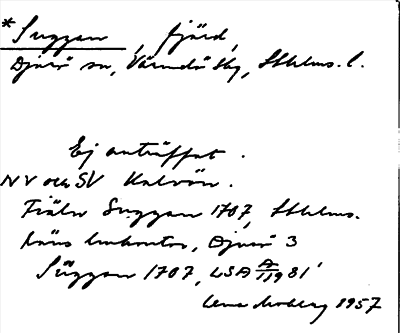 *Suggan, fjärd,
Djurö sn, Värmdö skg, Sthlms. l.
Ej anträffat.
NV och SV Kalvön.
Fiäln Suggan 1707, Sthlms.
läns lmkontor, Djurö 3
Süggan 1707, LSA A/119 81'
1957